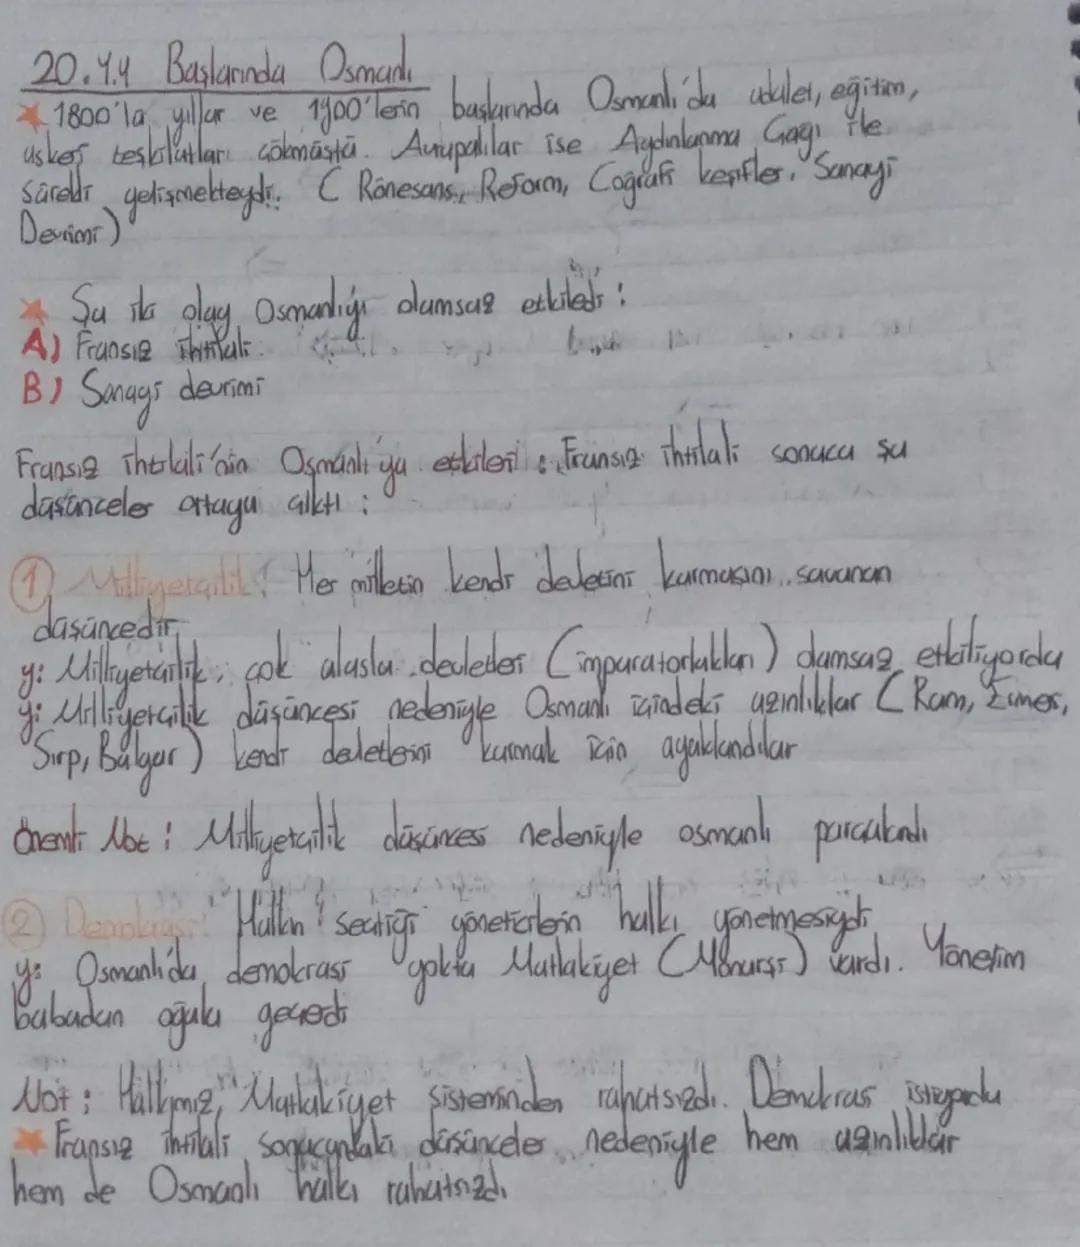 20. Y.Y Başlarında Osmanlı
1800'lü yıllar ve 1900'lerin başlarında Osmanlı'da adalet, eğitim,
asker teşkilatları çökmüştü. Avrupalılar ise Aydınlanma Çağı ile
sürekli gelişmekteydi. (Rönesans, Reform, Coğrafi keşifler, Sanayi
Devrimi)
Şu iki olay Osmanlıyı olumsuz etkiledi:
A) Fransız ihtilali
B) Sanayi devrimi
Fransız ihtilali'nin Osmanlı'ya etkileri: Fransız ihtilali sonucu şu
düşünceler ortaya çıktı:
1 Milliyetçilik: Her milletin kendi devletini kurmasını savunan
düşüncedir.
y: Milliyetçilik, çok uluslu devletleri (imparatorlukları) olumsuz etkiliyordu
y: Milliyetçilik düşüncesi nedeniyle Osmanlı içindeki azınlıklar (Rum, Ermeni,
Sırp, Bulgar) kendi devletlerini kurmak için ayaklandılar
Önemli Not: Milliyetçilik düşüncesi nedeniyle osmanlı parçalandı
2 Demokrasi: Halkın seçtiği yöneticilerin halkı yönetmesiydi
y: Osmanlı'da demokrasi yoktu Mutlakiyet (Monarşi) vardı. Yönetim
babadan oğula geçerdi
Not: Halkımız, Mutlakiyet sisteminden rahatsızdı. Demokrasi istiyordu
Fransız ihtilali sonucundaki düşünceler nedeniyle hem azınlıklar
hem de Osmanlı halkı rahatsızdı